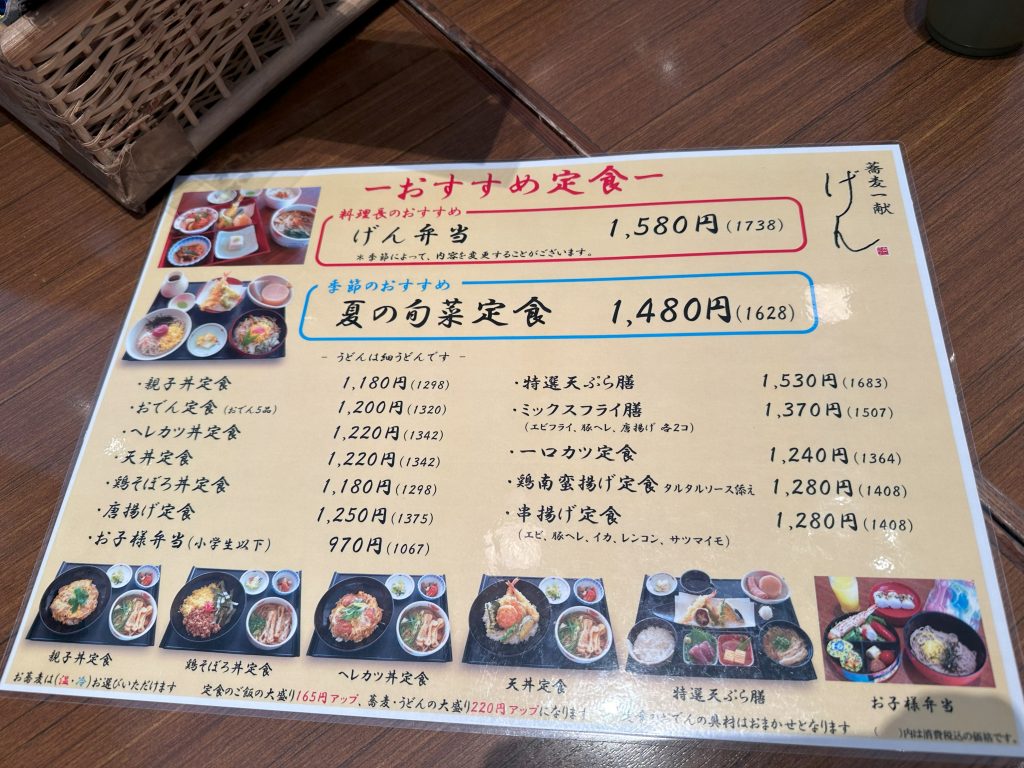 -おすすめ定食-
蕎麦一献
げん
料理長のおすすめ
げん弁当 1,580円(1738)
*季節によって、内容を変更することがございます。
季節のおすすめ
夏の旬菜定食 1,480円(1628)
- うどんは細うどんです -
・親子丼定食 1,180円(1298)
・おでん定食(おでん5品) 1,200円(1320)
・ヘレカツ丼定食 1,220円(1342)
・天丼定食 1,220円(1342)
・鶏そぼろ丼定食 1,180円(1298)
・唐揚げ定食 1,250円(1375)
・お子様弁当(小学生以下) 970円(1067)
・特選天ぷら膳 1,530円(1683)
・ミックスフライ膳 1,370円(1507)
(エビフライ、豚ヘレ、唐揚げ 各2コ)
・一口カツ定食 1,240円(1364)
・鶏南蛮揚げ定食 タルタルソース添え 1,280円(1408)
・串揚げ定食 1,280円(1408)
(エビ、豚ヘレ、イカ、レンコン、サツマイモ)
親子丼定食
鶏そぼろ丼定食
ヘレカツ丼定食
天丼定食
特選天ぷら膳
お子様弁当
お蕎麦は(温・冷)お選びいただけます
定食のご飯の大盛り165円アップ、蕎麦・うどんの大盛り220円アップになります
おでんの具材はおまかせとなります
( )内は消費税込の価格です。